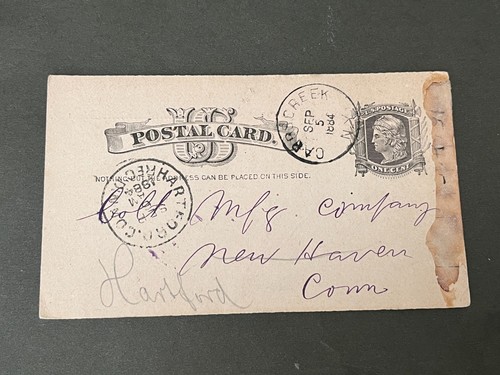 U.S. POSTAGE
US
POSTAL CARD.
ONE CENT
CREEK
SEP
5
1884
N.Y.
NOTHING BUT THE ADDRESS CAN BE PLACED ON THIS SIDE.
HARTFORD, CONN.
REC'D
1884
Colt Mfg. Company
New Haven
Conn
Hartford